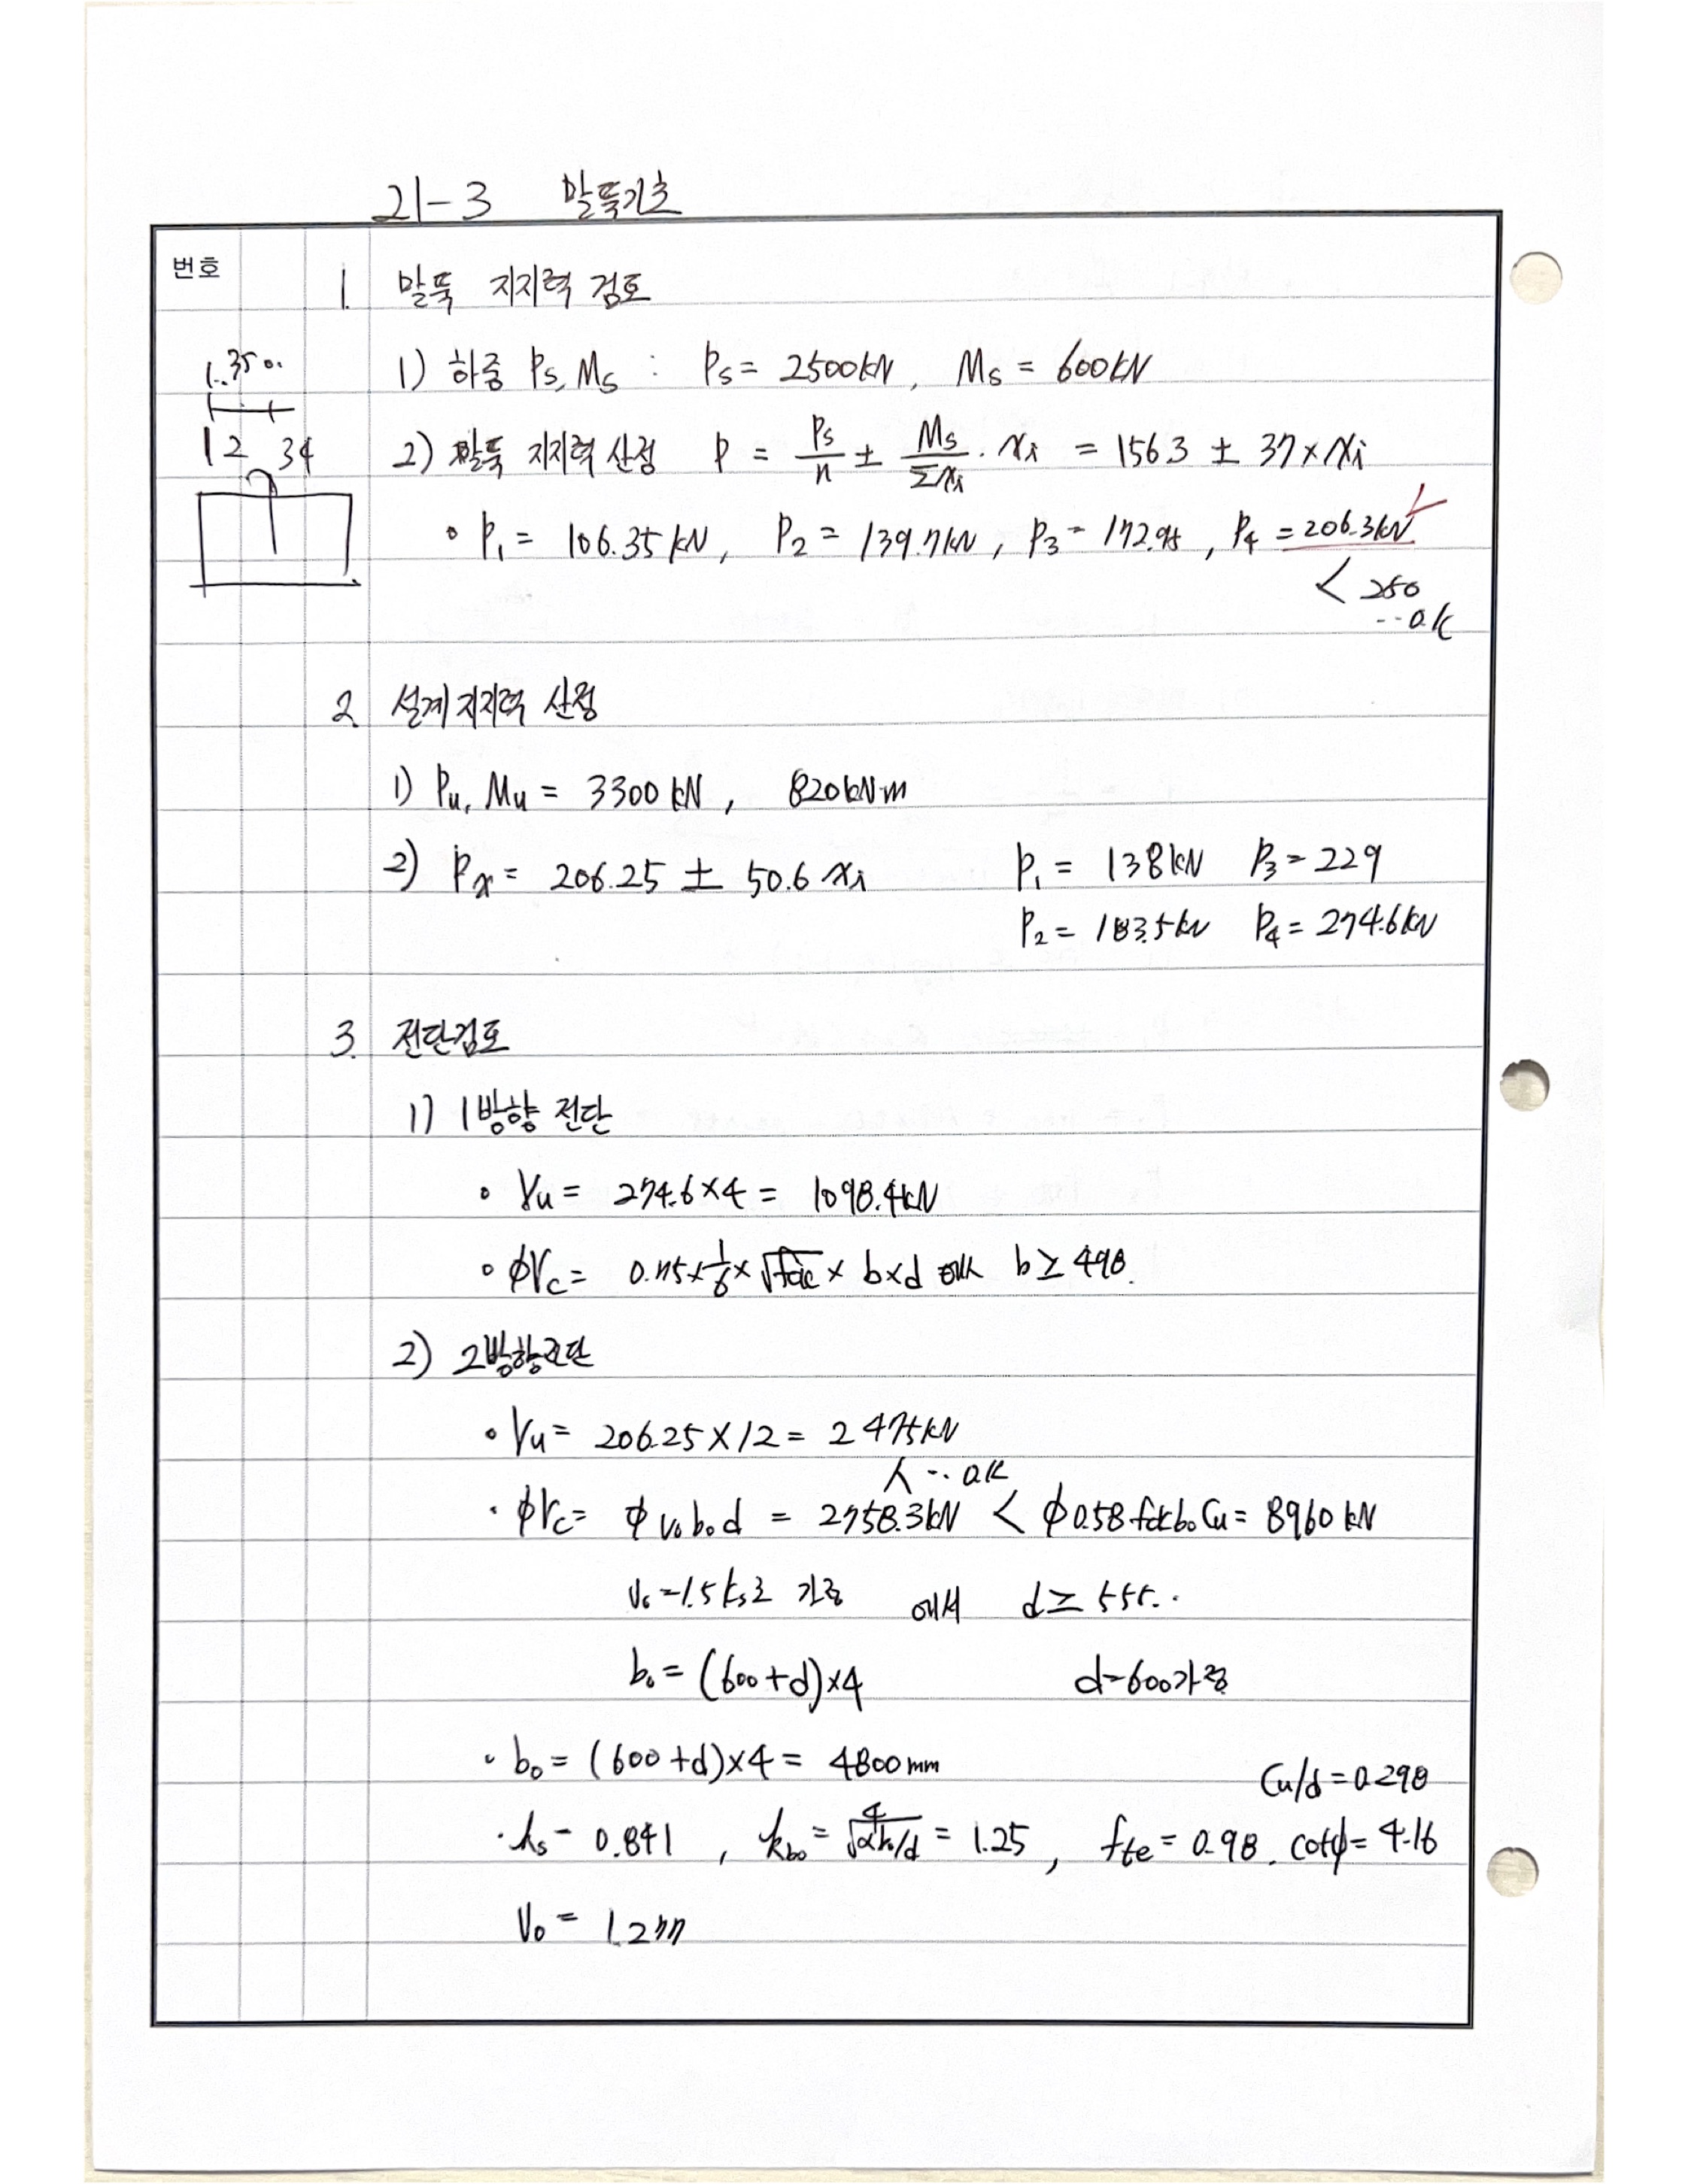 21-3 말뚝기초
번호
1. 말뚝 지지력 검토
1) 하중 Ps, Ms : Ps = 2500kN, Ms = 600kN
1.350.
1 2 3 4
2) 말뚝 지지력 산정 P = Ps/n ± Ms/Σxi · xi = 156.3 ± 37 × xi
• P1 = 106.35 kN, P2 = 139.7kN, P3 = 172.95, P4 = 206.3kN
< 250
∴ o.k
2. 설계지지력 산정
1) Pu, Mu = 3300 kN, 820kN·m
2) Px = 206.25 ± 50.6 xi P1 = 138kN P3 = 229
P2 = 183.5kN P4 = 274.6kN
3. 전단검토
1) 1방향 전단
• Vu = 274.6×4 = 1098.4kN
• φVc = 0.75×1/6×√fck × b×d 에서 b ≥ 498.
2) 2방향전단
• Vu = 206.25×12 = 2475kN
∧ ∴ ok
• φVc = φ vo bo d = 2758.3kN < φ 0.58 fck bo Cu = 8960 kN
Vc = 1.5 ks로 가정 에서 d ≥ 555..
bo = (600+d)×4 d=600가정
• bo = (600+d)×4 = 4800mm
Cu/d = 0.298
• ks = 0.841, kbo = 4/√αh/d = 1.25, fte = 0.98. cotφ = 4.16
Vo = 1.277